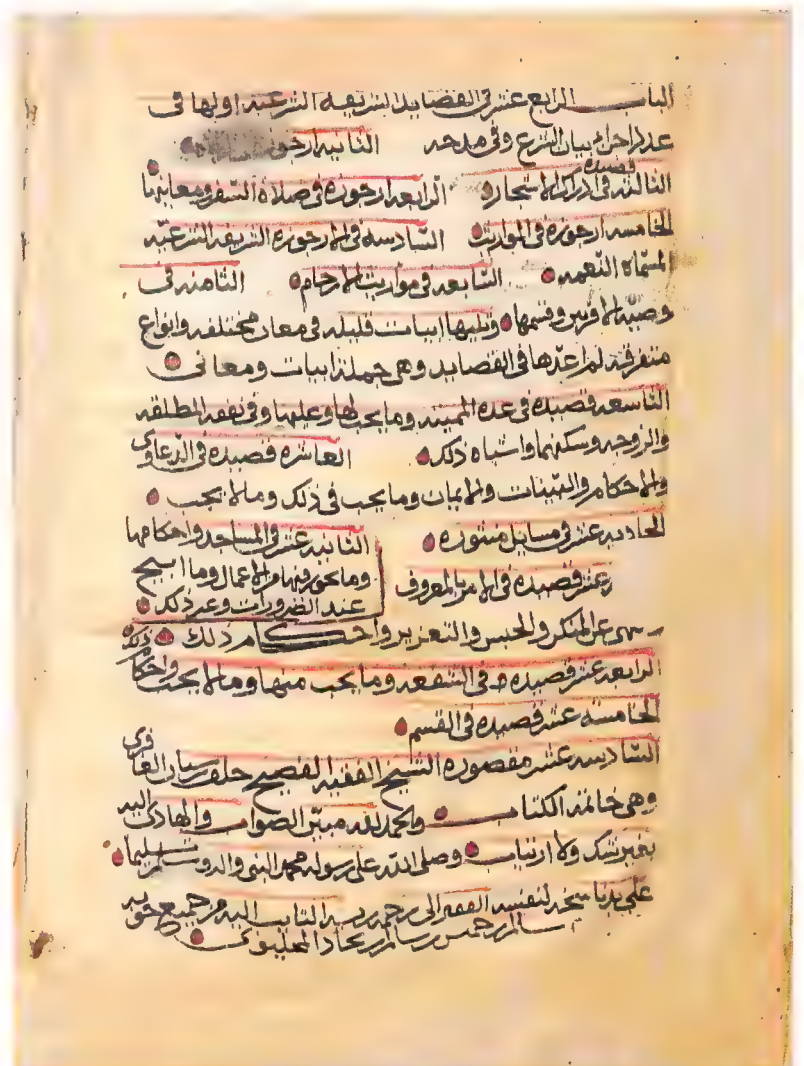 الباب الرابع عشر في القصايد الشريفة الشرعية اولها في
عدد اجزاء بيان الشرع وفي مدحه الثانية ارجوزة
قصيدة
الثالثة في ادراك الاشجار الرابعة ارجوزة في صلاة السفر ومعانيها
الخامسة ارجوزة في المواريث السادسة في الارجوزة الشريفة الشرعية
المسماة النعمة السابعة في مواريث الارحام الثامنة في
وصية الاقربين وقسمها وتليها ابيات قليلة في معان مختلفة وانواع
متفرقة لم اعدها في القصايد وهي جملة ابيات ومعاني
التاسعة قصيدة في عدة المميتة وما يجب لها وعليها وفي نفقة المطلقة
والزوجة وسكنهما واشباه ذلك العاشرة قصيدة في الدعاوى
والاحكام والبينات والايمان وما يجب في ذلك وما لا يجب
الحادية عشر في مسايل منثورة الثانية عشر في المساجد واحكامها
وما يجوز فيها من الاعمال وما ابيح
عند الضرورات وغير ذلك
عشر قصيدة في الامر بالمعروف
عن المنكر والحبس والتعزير واحكام ذلك
الرابعة عشر قصيدة في الشفعة وما يجب منها وما لا يجب واحكام ذلك
الخامسة عشر قصيدة في القسم
السادسة عشر مقصورة الشيخ الفقيه الفصيح خلف بن سنان الغافري
وهي خاتمة الكتاب والحمد لله مبين الصواب والهادي اليه
بغير شك ولا ارتياب وصلى الله على رسوله محمد النبي واله وسلم تسليما
على يد ناسخه لنفسه الفقير الى رحمة ربه التايب اليه من جميع حوبه
سالم بن خميس بن سالم بن نجاد المحليوي